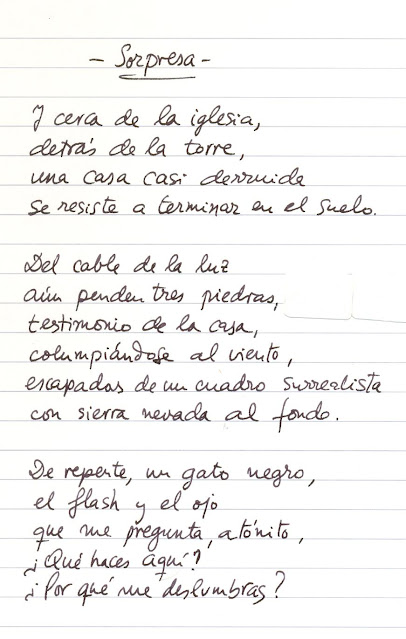 - Sorpresa -
Y cerca de la iglesia,
detrás de la torre,
una casa casi derruida
se resiste a terminar en el suelo.
Del cable de la luz
aún penden tres piedras,
testimonio de la casa,
columpiándose al viento,
escapadas de un cuadro surrealista
con sierra nevada al fondo.
De repente, un gato negro,
el flash y el ojo
que me pregunta, atónito,
¿Qué haces aquí?
¿Por qué me deslumbras?